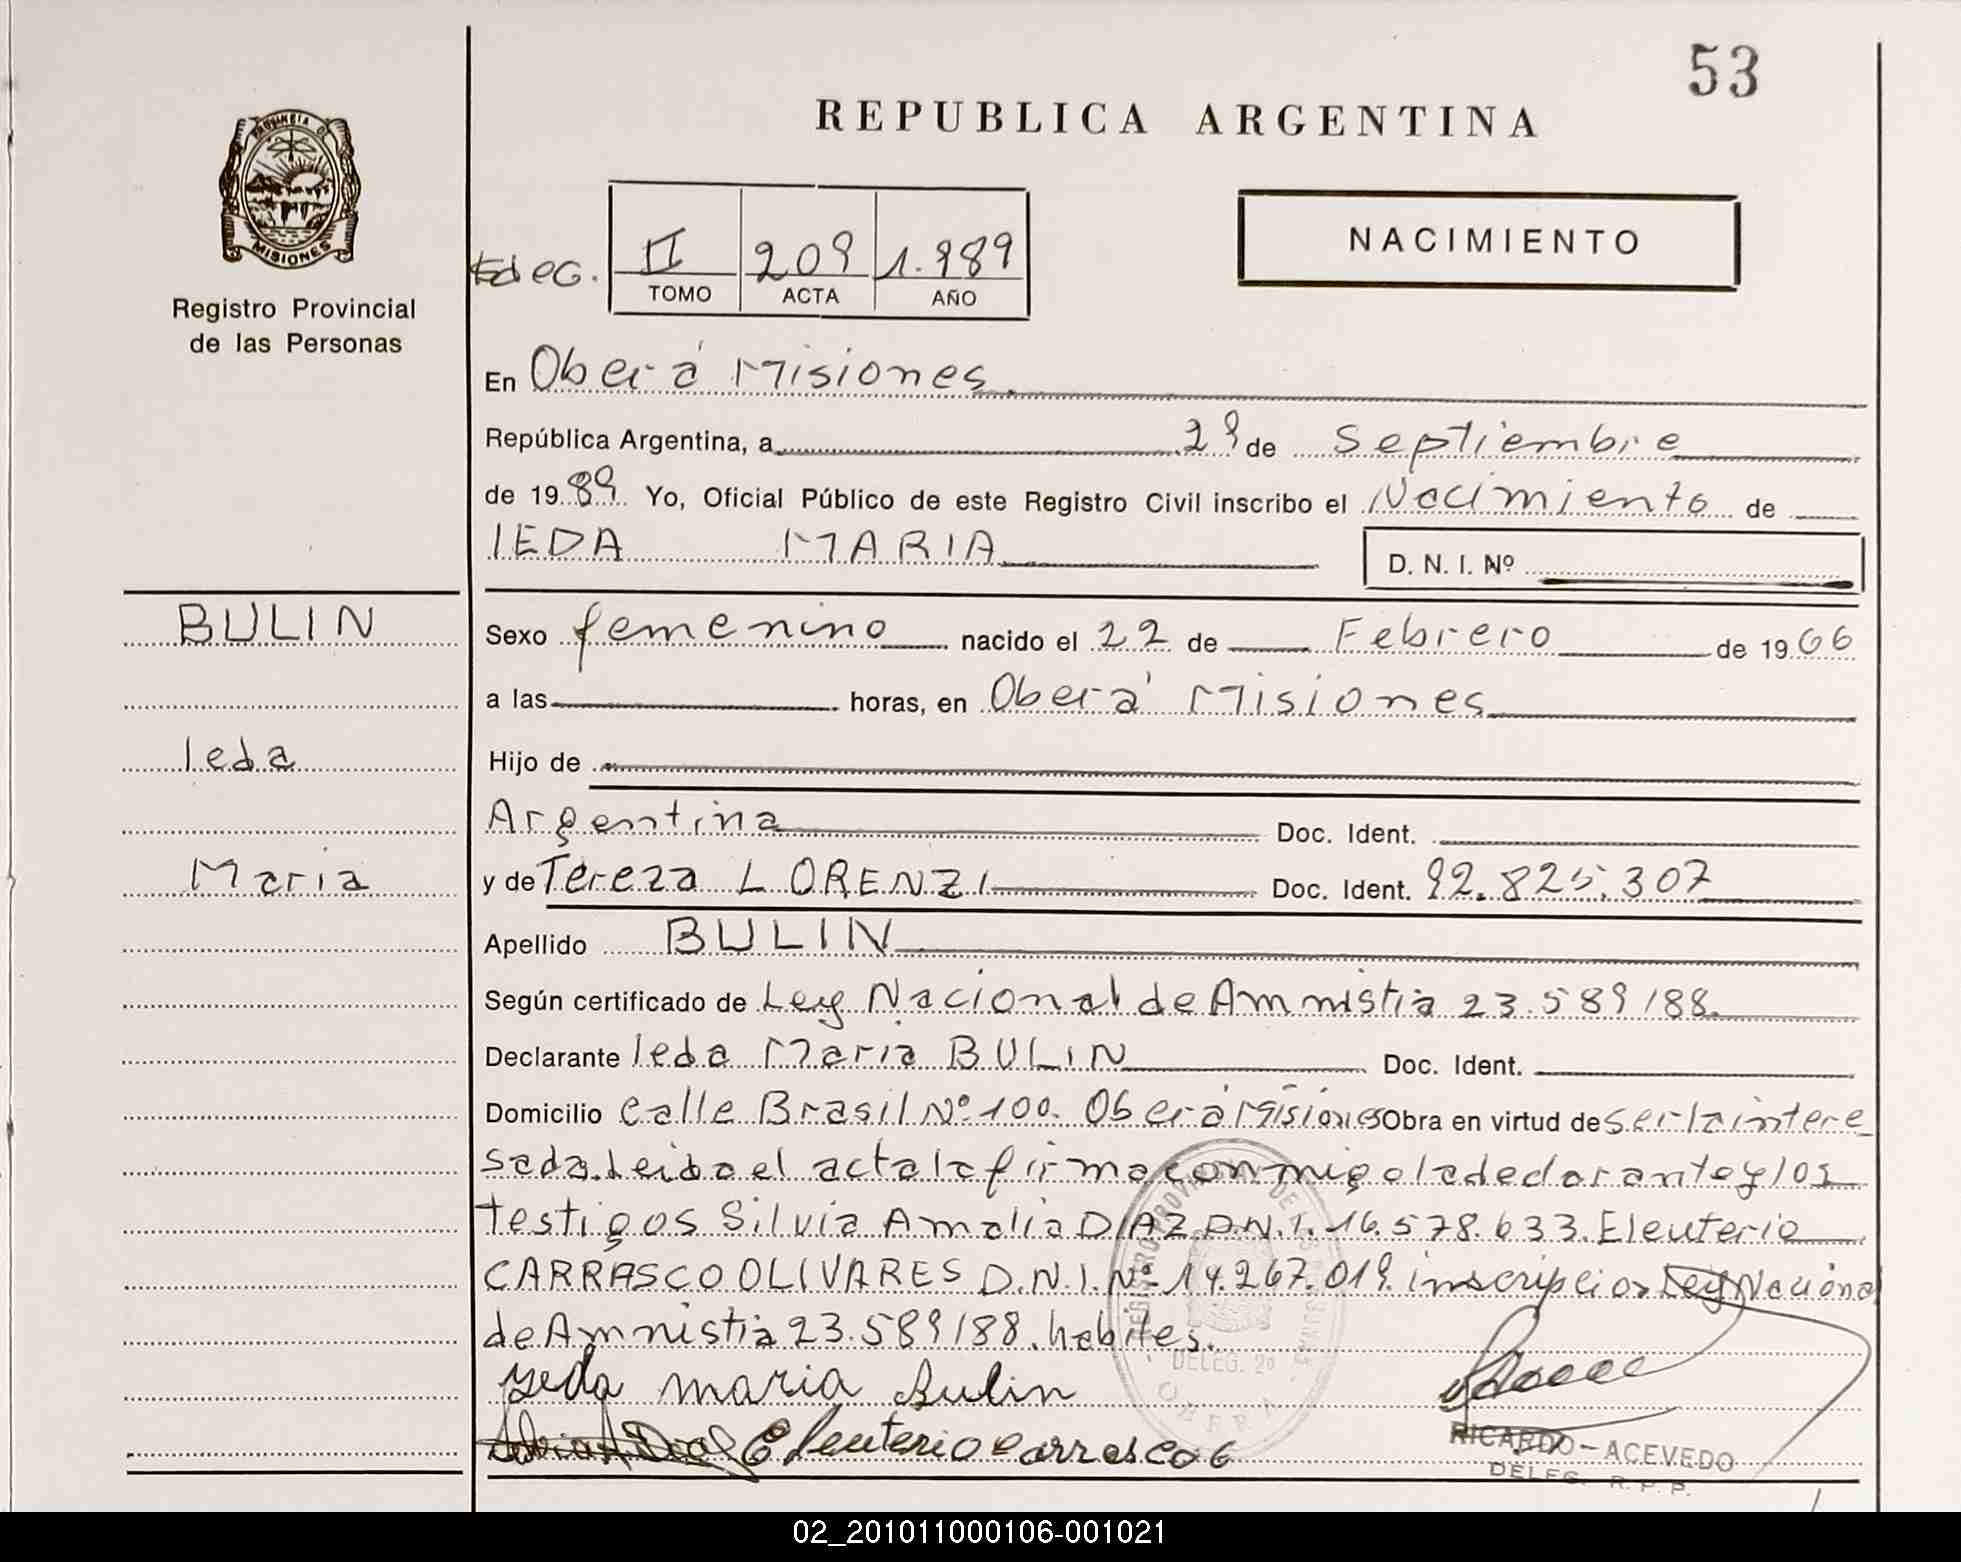 53
REPUBLICA ARGENTINA
PROVINCIA DE
MISIONES
Registro Provincial
de las Personas
II 209 1.989
TOMO ACTA AÑO
NACIMIENTO
En Oberá Misiones
República Argentina, a 29 de Septiembre
de 1989 Yo, Oficial Público de este Registro Civil inscribo el Nacimiento de
IEDA MARIA
D. N. I. Nº
BULIN
Ieda
Maria
Sexo femenino nacido el 22 de Febrero de 1966
a las horas, en Oberá Misiones
Hijo de
Argentina Doc. Ident.
y de Tereza LORENZI Doc. Ident. 92.825.307
Apellido BULIN
Según certificado de Ley Nacional de Amnistia 23.589/88.
Declarante Ieda Maria BULIN Doc. Ident.
Domicilio calle Brasil Nº 100. Oberá Misiones Obra en virtud de ser la intere
sada. Leida el acta la firma conmigo la declarante y los
testigos Silvia Amalia DIAZ D.N.I. 16.578.633. Eleuterio
CARRASCO OLIVARES D.N.I. Nº 14.267.019. inscripcion Ley Nacional
de Amnistia 23.589/88. habiles.
DELEG. 2º
OBERA
Yeda maria Bulin
Eleuterio Carrasco
RICARDO - ACEVEDO
DELEG. R. P. P.
02_201011000106-001021